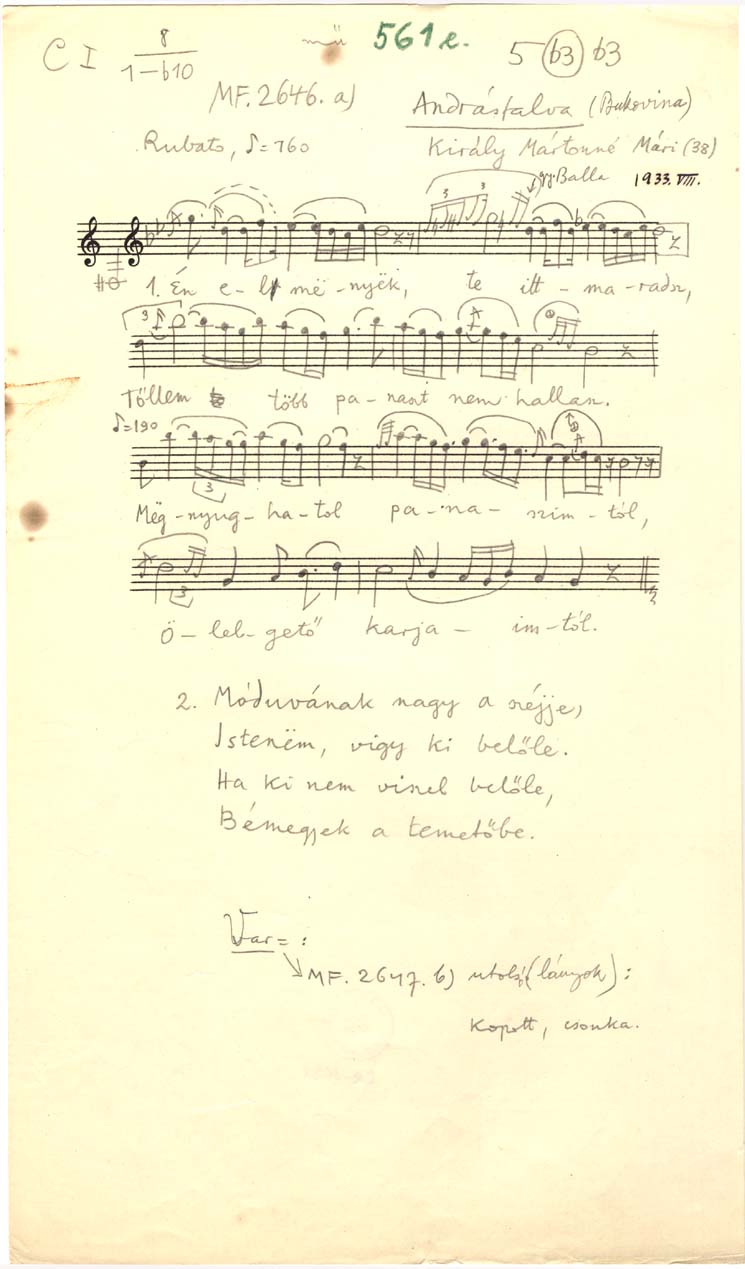 C I 8/1–b10 mű 561e. 5 (b3) b3
MF. 2646. a)
Andrásfalva (Bukovina)
Rubato, ♪=160 Király Mártonné Mári (38)
gy. Balla 1933. VIII.
1. Én e-l më-nyëk, te itt-ma-radsz,
3
Tőllem több pa-naszt nem hallasz.
♪=190
Mëg-nyug-ha-tol pa-na-szim-tól,
3
Ö-lel-gető karja-im-tól.
3
2. Móduvának nagy a széjje,
Istenëm, vigy ki belőle.
Ha ki nem viszel belőle,
Bémegjek a temetőbe.
Var=:
MF. 2647. b) utolsó (lányok):
Kopott, csonka.